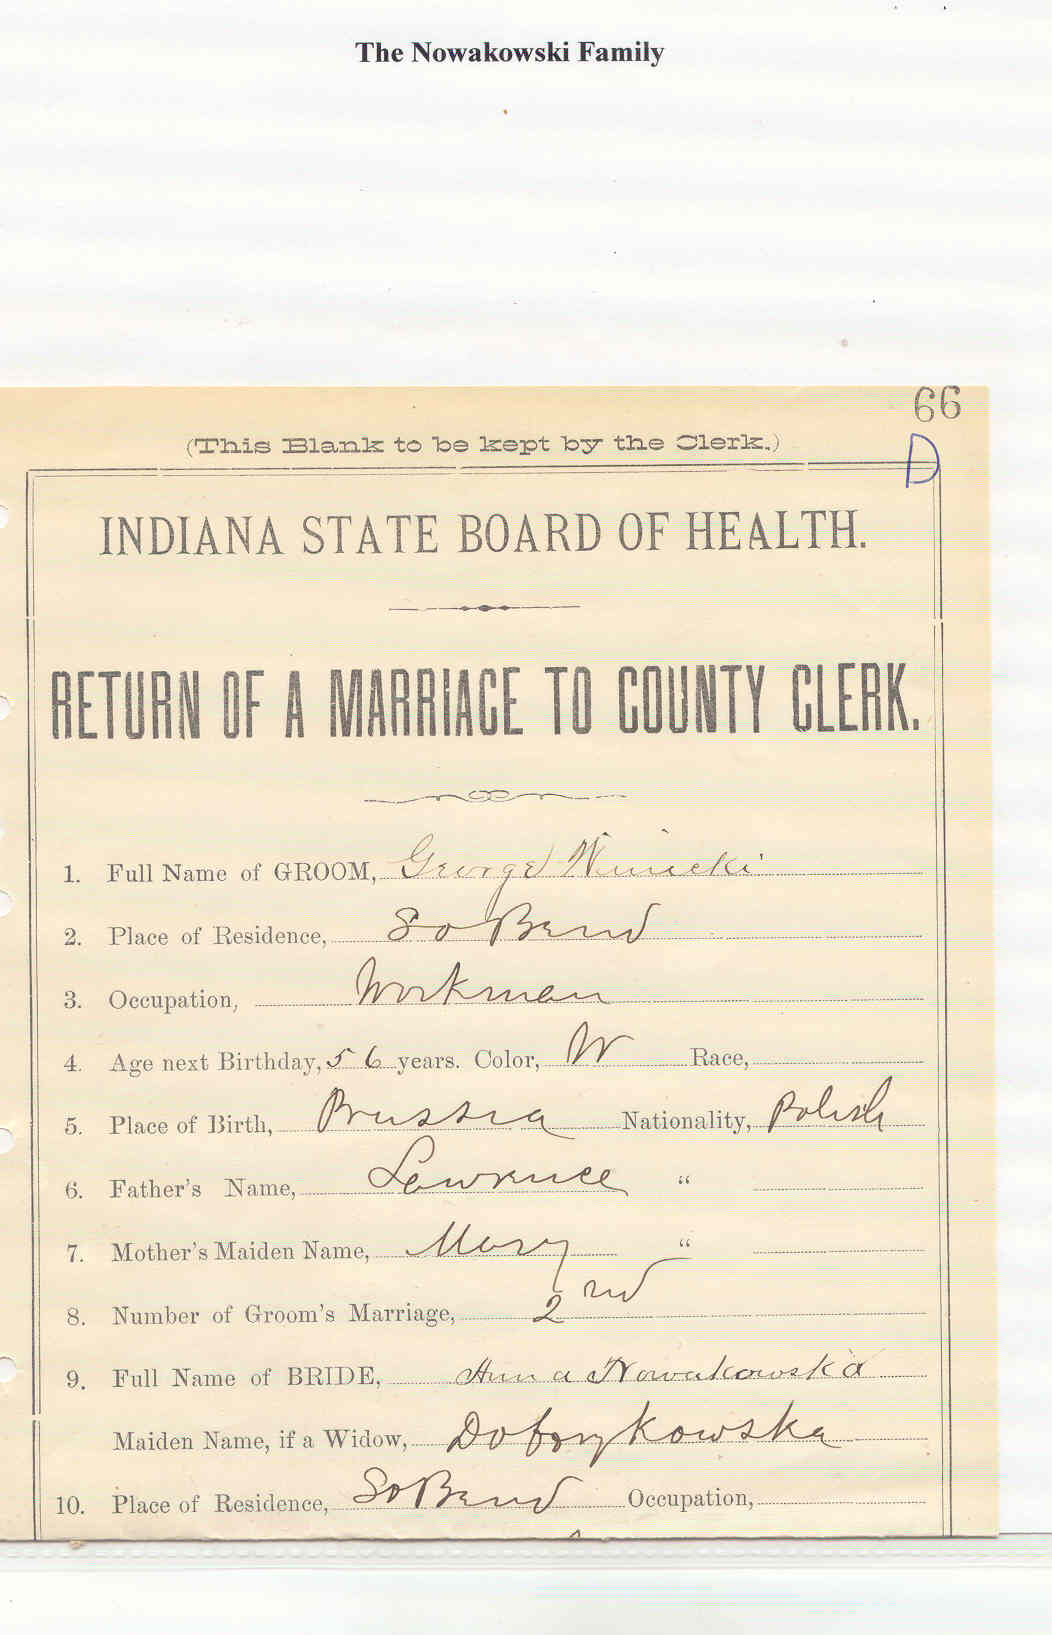 The Nowakowski Family
66
(This Blank to be kept by the Clerk.)
D
INDIANA STATE BOARD OF HEALTH.
RETURN OF A MARRIAGE TO COUNTY CLERK.
1. Full Name of GROOM, George Winiecki
2. Place of Residence, So Bend
3. Occupation, Workman
4. Age next Birthday, 56 years. Color, W Race,
5. Place of Birth, Prussia Nationality, Polish
6. Father's Name, Lawrence "
7. Mother's Maiden Name, Mary "
8. Number of Groom's Marriage, 2nd
9. Full Name of BRIDE, Anna Nowakowska
Maiden Name, if a Widow,
10. Place of Residence, So Bend Occupation,